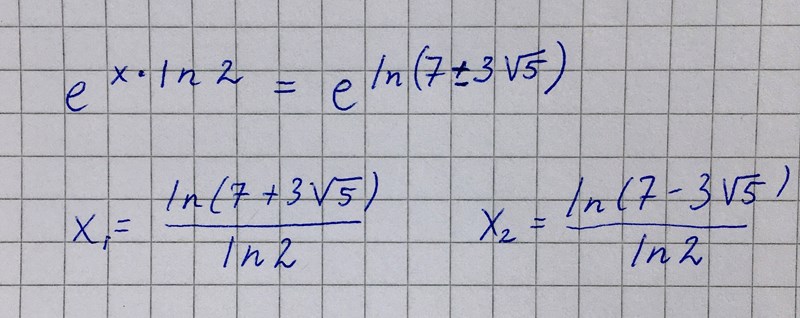 e^{x·ln2} = e^{ln(7±3√5)}
x₁= \frac{ln(7+3√5)}{ln2} x₂ = \frac{ln(7-3√5)}{ln2}